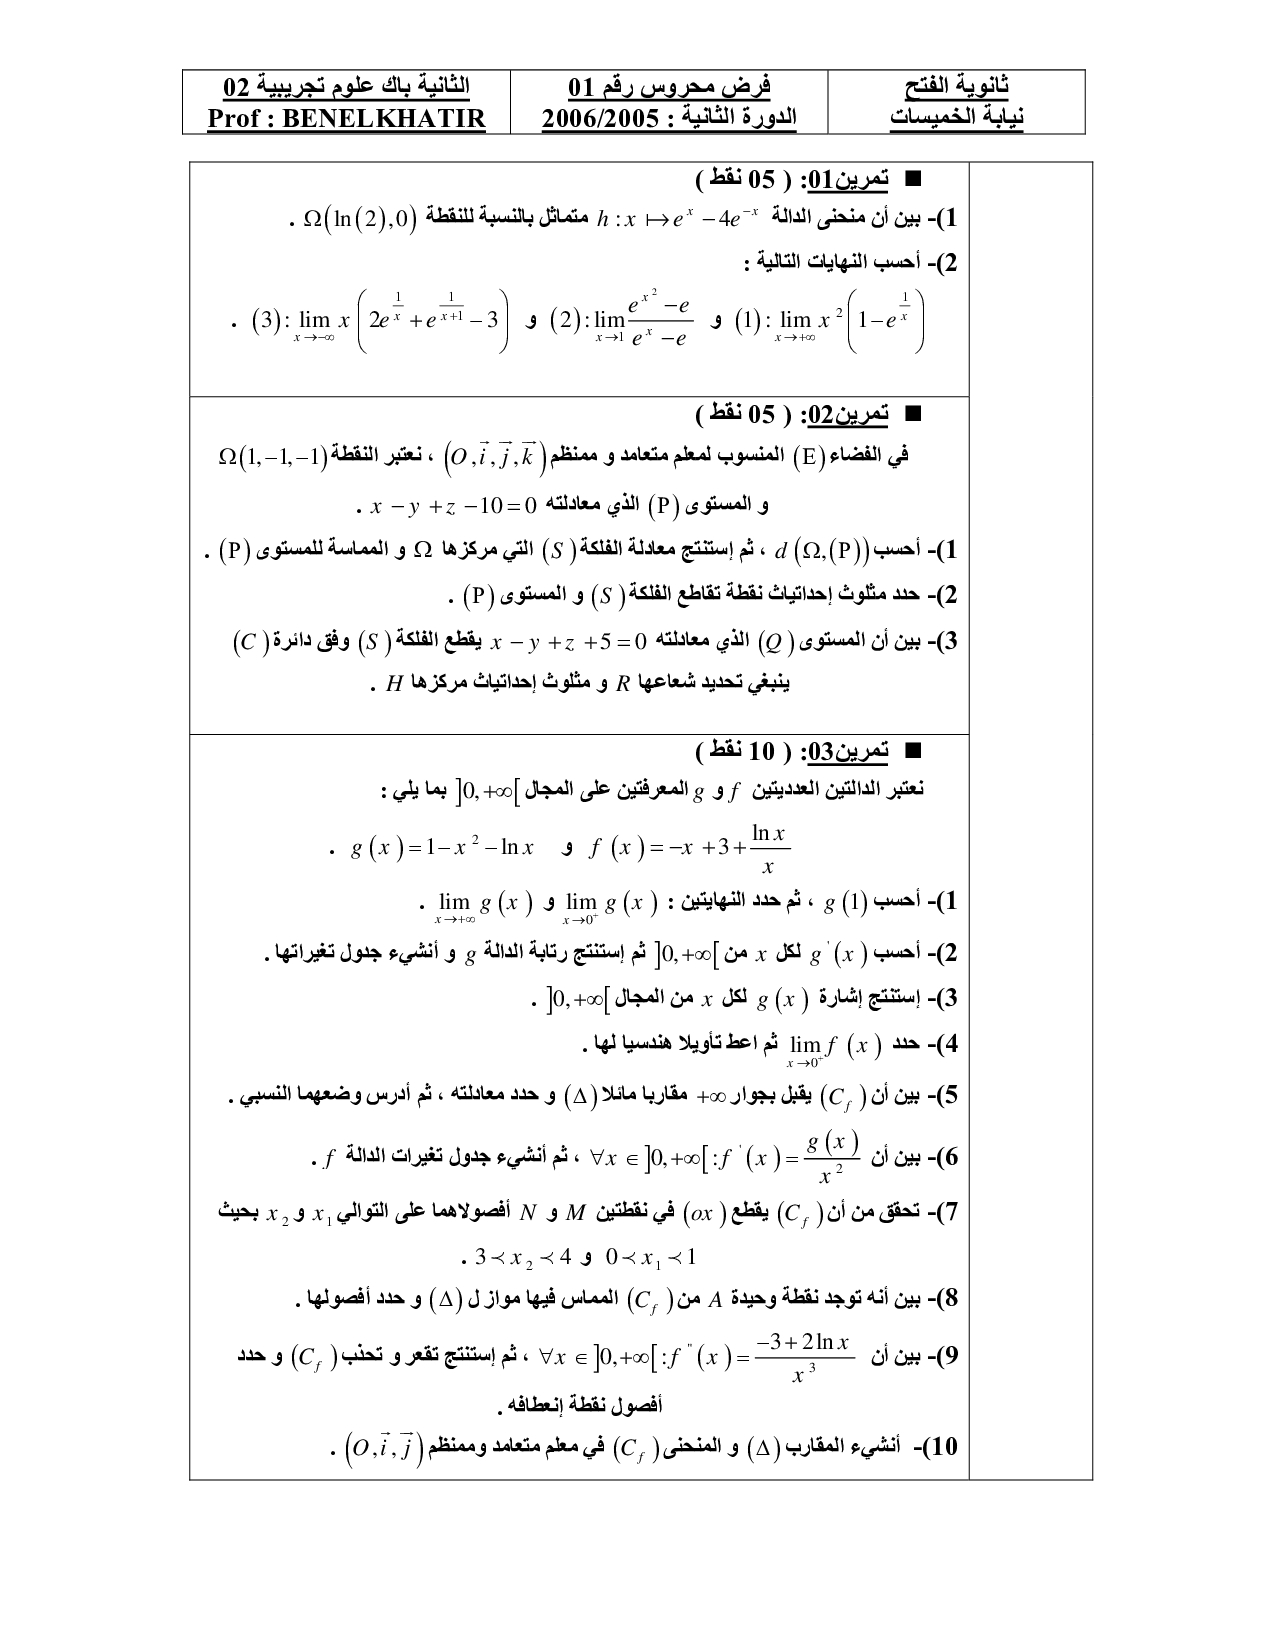 ثانوية الفتح
نيابة الخميسات
فرض محروس رقم 01
الدورة الثانية : 2006/2005
الثانية باك علوم تجريبية 02
Prof : BENELKHATIR
■ تمرين01: ( 05 نقط )
1)- بين أن منحنى الدالة h : x ↦ e^x − 4e^{−x} متماثل بالنسبة للنقطة Ω(ln(2),0) .
2)- أحسب النهايات التالية :
(1): lim_{x→+∞} x^2 (1 − e^{1/x}) و (2): lim_{x→1} (e^{x^2} − e)/(e^x − e) و (3): lim_{x→−∞} x (2e^{1/x} + e^{1/(x+1)} − 3) .
■ تمرين02: ( 05 نقط )
في الفضاء (E) المنسوب لمعلم متعامد و ممنظم (O, i⃗, j⃗, k⃗) ، نعتبر النقطة Ω(1,−1,−1)
و المستوى (P) الذي معادلته x − y + z − 10 = 0 .
1)- أحسب d(Ω,(P)) ، ثم إستنتج معادلة الفلكة (S) التي مركزها Ω و المماسة للمستوى (P) .
2)- حدد مثلوث إحداتياث نقطة تقاطع الفلكة (S) و المستوى (P) .
3)- بين أن المستوى (Q) الذي معادلته x − y + z + 5 = 0 يقطع الفلكة (S) وفق دائرة (C)
ينبغي تحديد شعاعها R و مثلوث إحداتياث مركزها H .
■ تمرين03: ( 10 نقط )
نعتبر الدالتين العدديتين f و g المعرفتين على المجال ]0,+∞[ بما يلي :
f(x) = −x + 3 + ln x / x و g(x) = 1 − x^2 − ln x .
1)- أحسب g(1) ، ثم حدد النهايتين : lim_{x→0^+} g(x) و lim_{x→+∞} g(x) .
2)- أحسب g'(x) لكل x من ]0,+∞[ ثم إستنتج رتابة الدالة g و أنشيء جدول تغيراتها .
3)- إستنتج إشارة g(x) لكل x من المجال ]0,+∞[ .
4)- حدد lim_{x→0^+} f(x) ثم اعط تأويلا هندسيا لها .
5)- بين أن (C_f) يقبل بجوار +∞ مقاربا مائلا (Δ) و حدد معادلته ، ثم أدرس وضعهما النسبي .
6)- بين أن ∀x ∈ ]0,+∞[ : f'(x) = g(x)/x^2 ، ثم أنشيء جدول تغيرات الدالة f .
7)- تحقق من أن (C_f) يقطع (ox) في نقطتين M و N أفصولاهما على التوالي x_1 و x_2 بحيث
0 ≺ x_1 ≺ 1 و 3 ≺ x_2 ≺ 4 .
8)- بين أنه توجد نقطة وحيدة A من (C_f) المماس فيها مواز ل (Δ) و حدد أفصولها .
9)- بين أن ∀x ∈ ]0,+∞[ : f''(x) = (−3 + 2 ln x)/x^3 ، ثم إستنتج تقعر و تحذب (C_f) و حدد
أفصول نقطة إنعطافه .
10)- أنشيء المقارب (Δ) و المنحنى (C_f) في معلم متعامد وممنظم (O, i⃗, j⃗) .